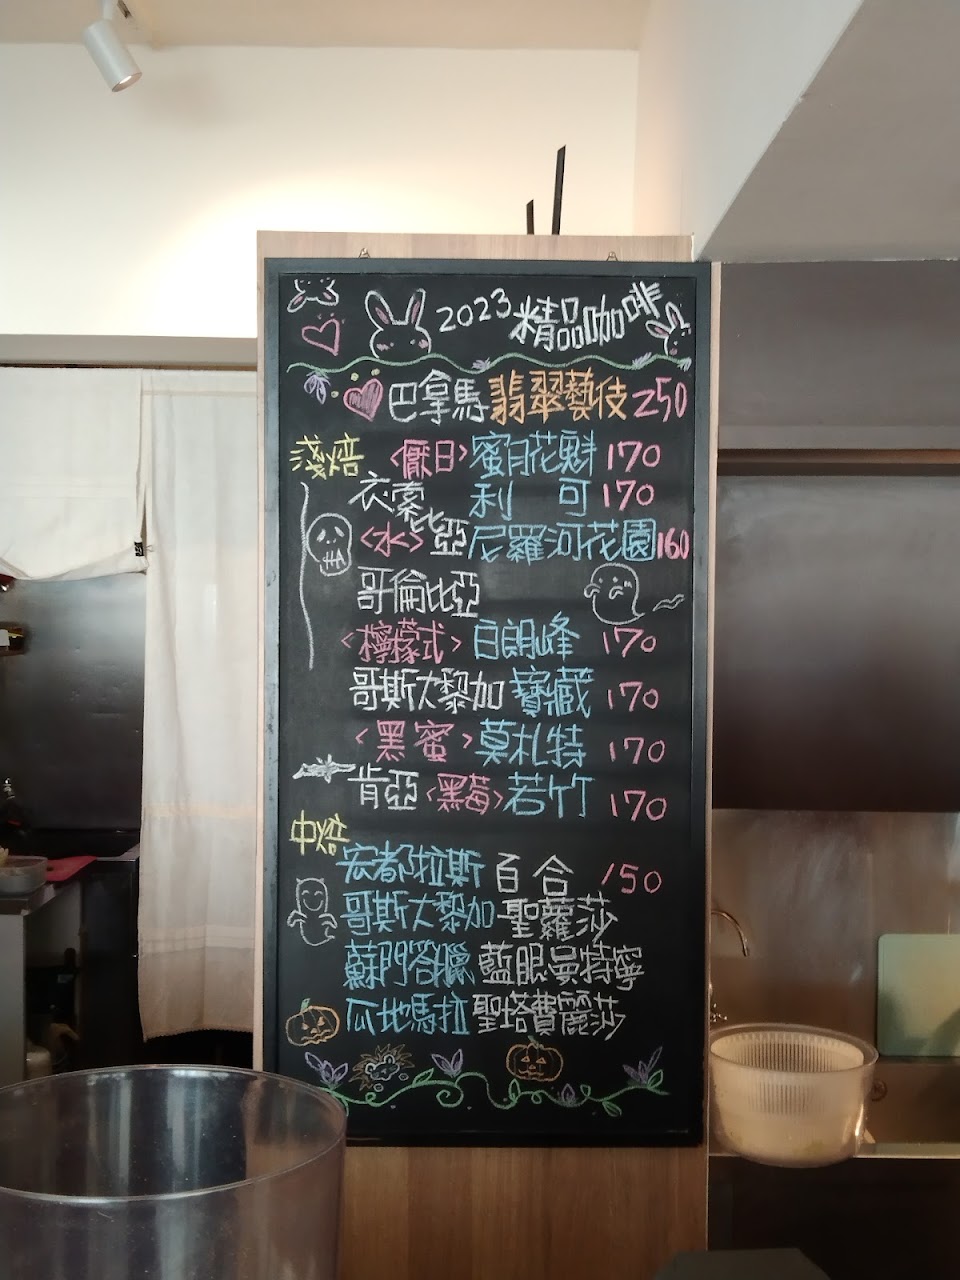 2023 精品咖啡
巴拿馬 翡翠藝伎 250
淺焙 <厭日> 蜜月花魁 170
衣索比亞 利可 170
<水> 尼羅河花園 160
哥倫比亞
<檸檬式> 白朗峰 170
哥斯大黎加 寶藏 170
<黑蜜> 莫札特 170
肯亞 <黑莓> 若竹 170
中焙
宏都拉斯 百合 150
哥斯大黎加 聖蘿莎
蘇門答臘 藍眼曼特寧
瓜地馬拉 聖塔費麗莎